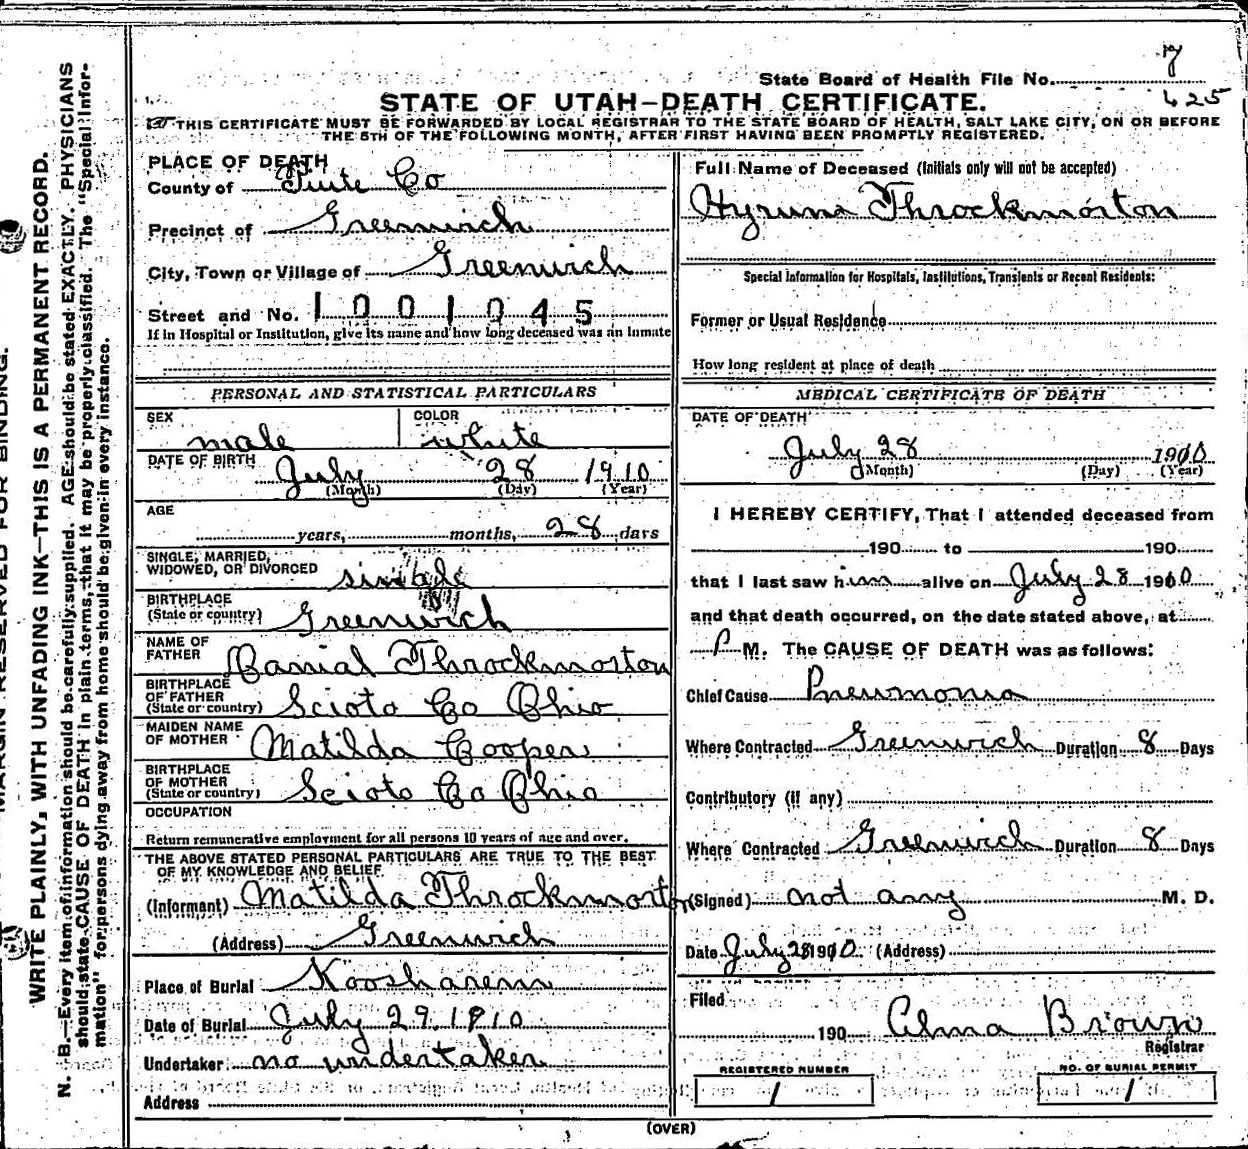 7
State Board of Health File No.
425
STATE OF UTAH—DEATH CERTIFICATE.
THIS CERTIFICATE MUST BE FORWARDED BY LOCAL REGISTRAR TO THE STATE BOARD OF HEALTH, SALT LAKE CITY, ON OR BEFORE
THE 5TH OF THE FOLLOWING MONTH, AFTER FIRST HAVING BEEN PROMPTLY REGISTERED.
PLACE OF DEATH
County of Piute Co
Precinct of Greenwich
City, Town or Village of Greenwich
Street and No. 1001045
If in Hospital or Institution, give its name and how long deceased was an inmate
PERSONAL AND STATISTICAL PARTICULARS
SEX male COLOR white
DATE OF BIRTH July 28 1910
(Month) (Day) (Year)
AGE
years, months, 28 days
SINGLE, MARRIED,
WIDOWED, OR DIVORCED single
BIRTHPLACE
(State or country) Greenwich
NAME OF
FATHER Danial Throckmorton
BIRTHPLACE
OF FATHER
(State or country) Scioto Co Ohio
MAIDEN NAME
OF MOTHER Matilda Cooper
BIRTHPLACE
OF MOTHER
(State or country) Scioto Co Ohio
OCCUPATION
Return remunerative employment for all persons 10 years of age and over.
THE ABOVE STATED PERSONAL PARTICULARS ARE TRUE TO THE BEST
OF MY KNOWLEDGE AND BELIEF
(Informant) Matilda Throckmorton
(Address) Greenwich
Place of Burial Koosharem
Date of Burial July 29. 1910
Undertaker no undertaker
Address
Full Name of Deceased (Initials only will not be accepted)
Hyrum Throckmorton
Special Information for Hospitals, Institutions, Transients or Recent Residents:
Former or Usual Residence
How long resident at place of death
MEDICAL CERTIFICATE OF DEATH
DATE OF DEATH
July 28 1910
(Month) (Day) (Year)
I HEREBY CERTIFY, That I attended deceased from
190 to 190
that I last saw him alive on July 28 1910
and that death occurred, on the date stated above, at
P M. The CAUSE OF DEATH was as follows:
Chief Cause Pneumonia
Where Contracted Greenwich Duration 8 Days
Contributory (if any)
Where Contracted Greenwich Duration 8 Days
(Signed) not any M. D.
Date July 28 1910 (Address)
Filed
190 Alma Brown
Registrar
REGISTERED NUMBER
1
NO. OF BURIAL PERMIT
1
(OVER)
MARGIN RESERVED FOR BINDING.
WRITE PLAINLY, WITH UNFADING INK—THIS IS A PERMANENT RECORD.
N. B.—Every item of information should be carefully supplied. AGE should be stated EXACTLY. PHYSICIANS
should state CAUSE OF DEATH in plain terms, that it may be properly classified. The "Special Infor-
mation" for persons dying away from home should be given in every instance.